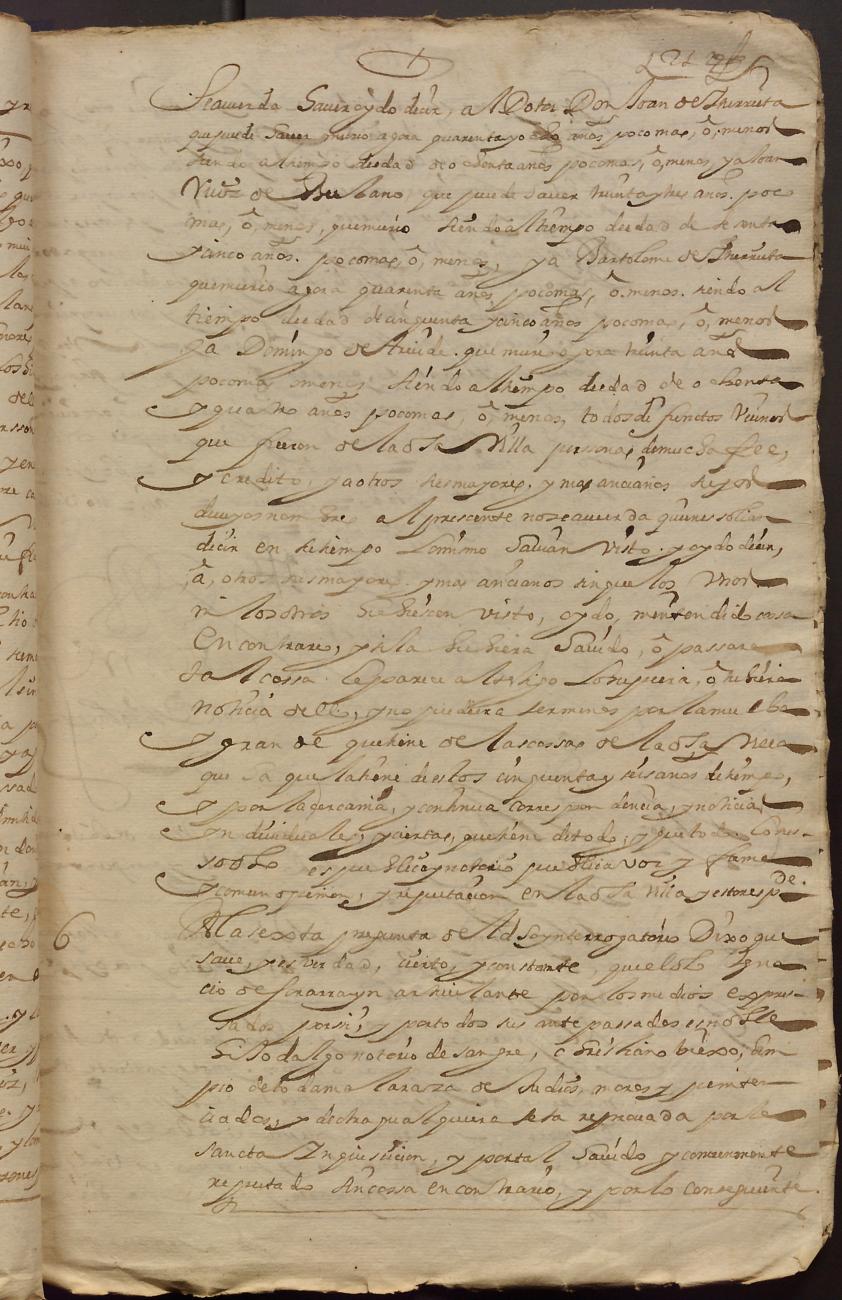 Seacuerda haver oydo decir, al Dotor Don Joan de Iherruta
que puede haver murio agora quarenta y ocho años poco mas, o, menos
siendo al tiempo de edad de ochenta años poco mas, o, menos, y a Joan
Ruiz de Bulano, que puede haver treinta y tres años. poco
mas, o, menos, que murio siendo al tiempo de edad de sesenta
y cinco años. poco mas, o, menos, y a Bartolome de Iherruta
que murio agora quarenta años, poco mas, o, menos. siendo al
tiempo de edad de cinquenta y cinco años poco mas, o, menos
y a Domingo de que murio ora treinta años
poco mas o menos siendo al tiempo de edad de ochenta
y quatro años poco mas, o, menos, todos defunctos vecinos
que fueron de la dha Villa personas de mucha fee,
y credito, y a otros sus mayores. y mas ancianos
de cuyos nombres al presente no se acuerda quienes solian
decir en su tiempo lo mismo havian visto. y oydo decir,
a, otros sus mayores. y mas ancianos sin que los unos
ni los otros hubiesen visto, oydo, ni entendido cosa
en contrario, y si la hubiera havido, o passara
tal cossa le parece al testigo lo supiera, o tubiera
noticia de ello, y no pudiera ser menos por la mucha
y grande que tiene de las cossas de la dha
que ha que la tiene de estos cinquenta y seis años de tiempo,
y por la cercania, y continua correspondencia, y noticias
individuales, y ciertas, que tiene de todo, y que todo lo
es publico y notorio publica voz y fama
y comun opinion, y reputacion en la dha villa y esto resp.de
6 A la sexta pregunta del dho ynterrogatorio Dixo que
save, y es verdad, cierto, y constante, que el dho Igna
cio de articulante por los medios expre-
sados por si, y por todos sus antepassados es noble
hijodalgo notorio de sangre, christiano biexo, lim
pio de toda mala raza de Judios, moros y peniten
ciados, y de otra qualquiera seta reprovada por la
sancta Inquisicion, y por tal havido y comunmente
reputado sin cossa en contrario, y por lo conseguiente.